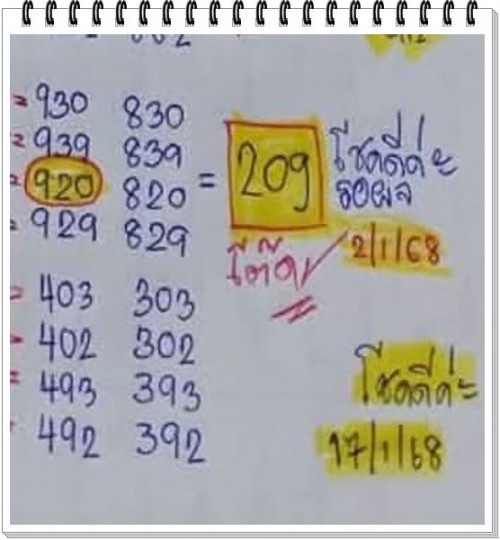 = 930 830
= 939 839
= 920 820 = 209 โชคดีค่ะ
รอผล
= 929 829
โต๊ด ✓ 2/1/68
403 303
402 302
= 493 393
492 392
โชคดีค่ะ
17/1/68